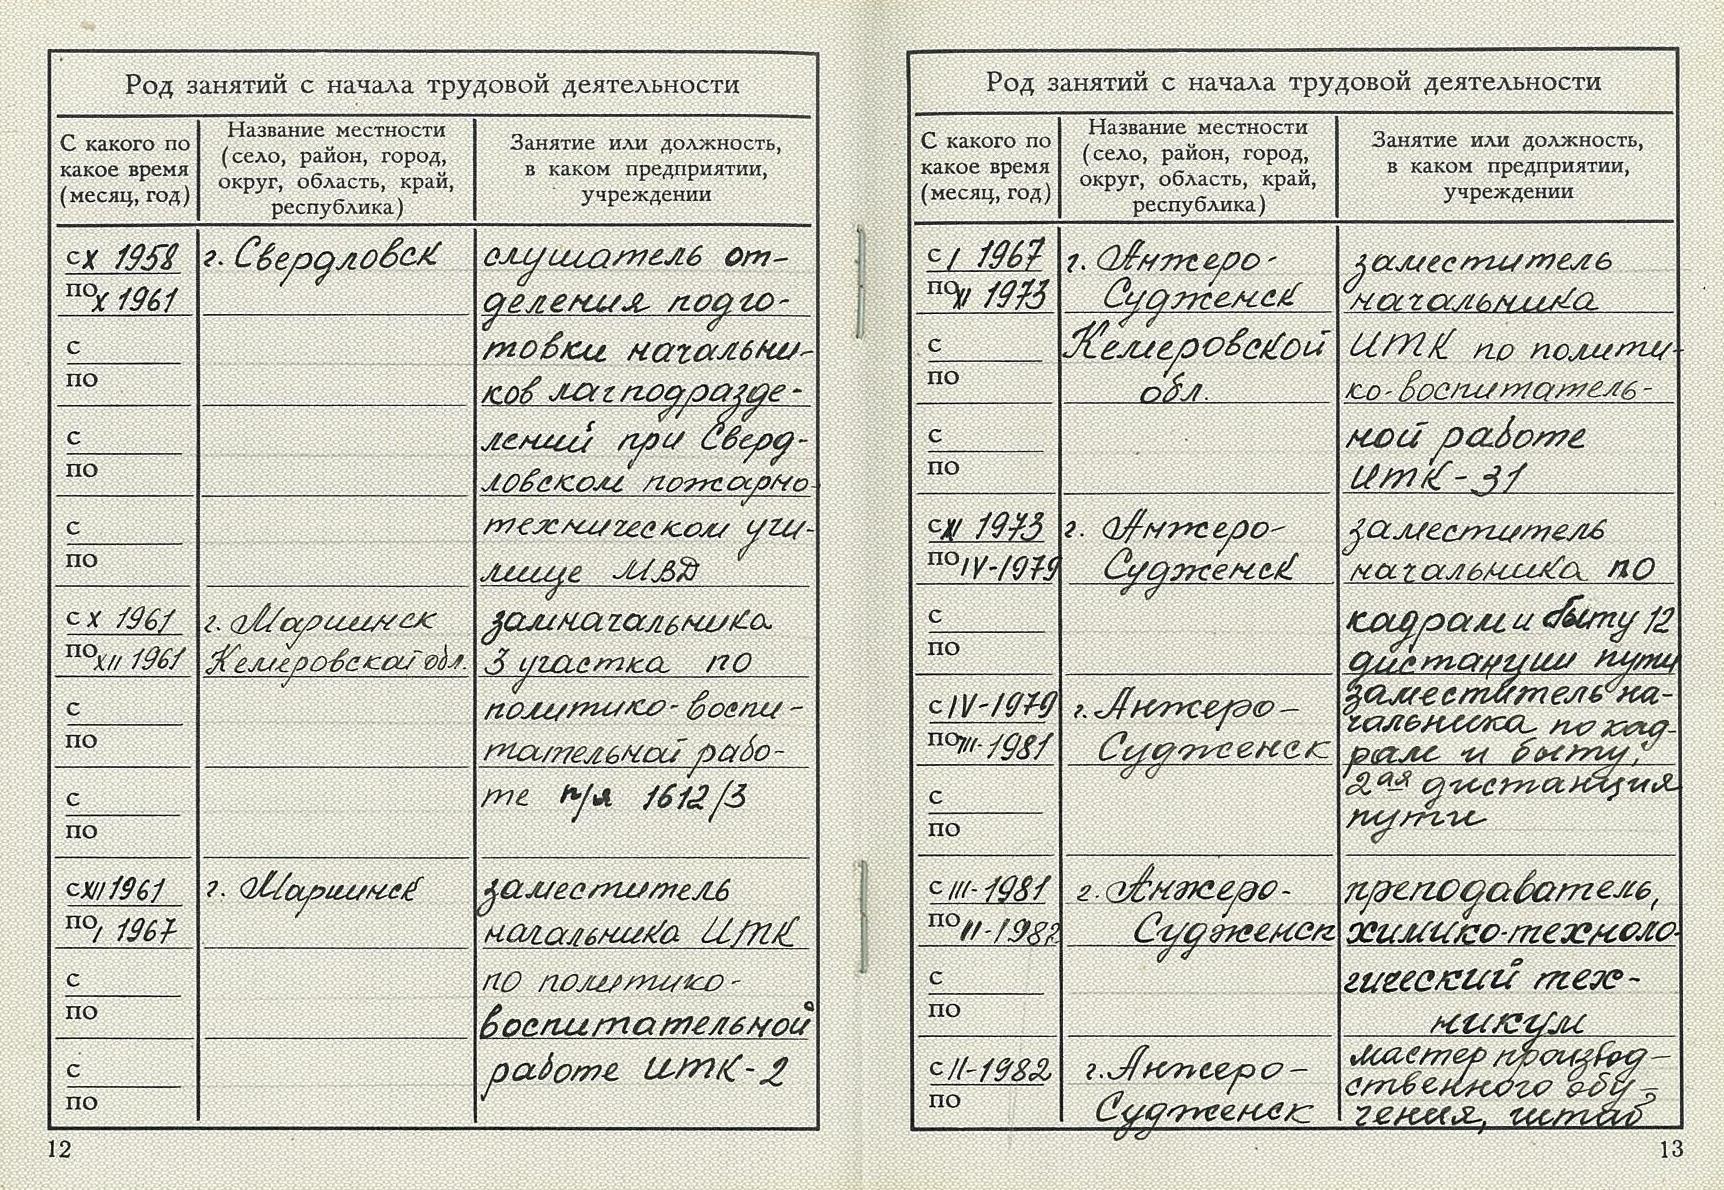 Род занятий с начала трудовой деятельности
С какого по
какое время
(месяц, год)
Название местности
(село, район, город,
округ, область, край,
республика)
Занятие или должность,
в каком предприятии,
учреждении
с X 1958 г. Свердловск слушатель от-
по X 1961 деления подго-
с товки начальни-
по ков лагподразде-
с лений при Сверд-
по ловском пожарно-
с техническом учи-
по лище МВД
с X 1961 г. Мариинск замначальника
по XII 1961 Кемеровской обл. 3 участка по
с политико-воспи-
по тательной рабо-
с те п/я 1612/3
по
с XII 1961 г. Мариинск заместитель
по I 1967 начальника ИТК
с по политико-
по воспитательной
с работе ИТК-2
по
12
Род занятий с начала трудовой деятельности
С какого по
какое время
(месяц, год)
Название местности
(село, район, город,
округ, область, край,
республика)
Занятие или должность,
в каком предприятии,
учреждении
с I 1967 г. Анжеро- заместитель
по XI 1973 Судженск начальника
с Кемеровской ИТК по полити-
по обл. ко-воспитатель-
с ной работе
по ИТК-31
с XI 1973 г. Анжеро- заместитель
по IV-1979 Судженск начальника по
с кадрам и быту 12
по дистанции пути
с IV-1979 г. Анжеро- заместитель на-
чальника по кад-
по III-1981 Судженск рам и быту,
с 2ая дистанция
по пути
с III-1981 г. Анжеро- преподаватель,
по II-1982 Судженск химико-техноло-
с гический тех-
по никум
с II-1982 г. Анжеро- мастер производ-
ственного обу-
по Судженск чения, штаб
13